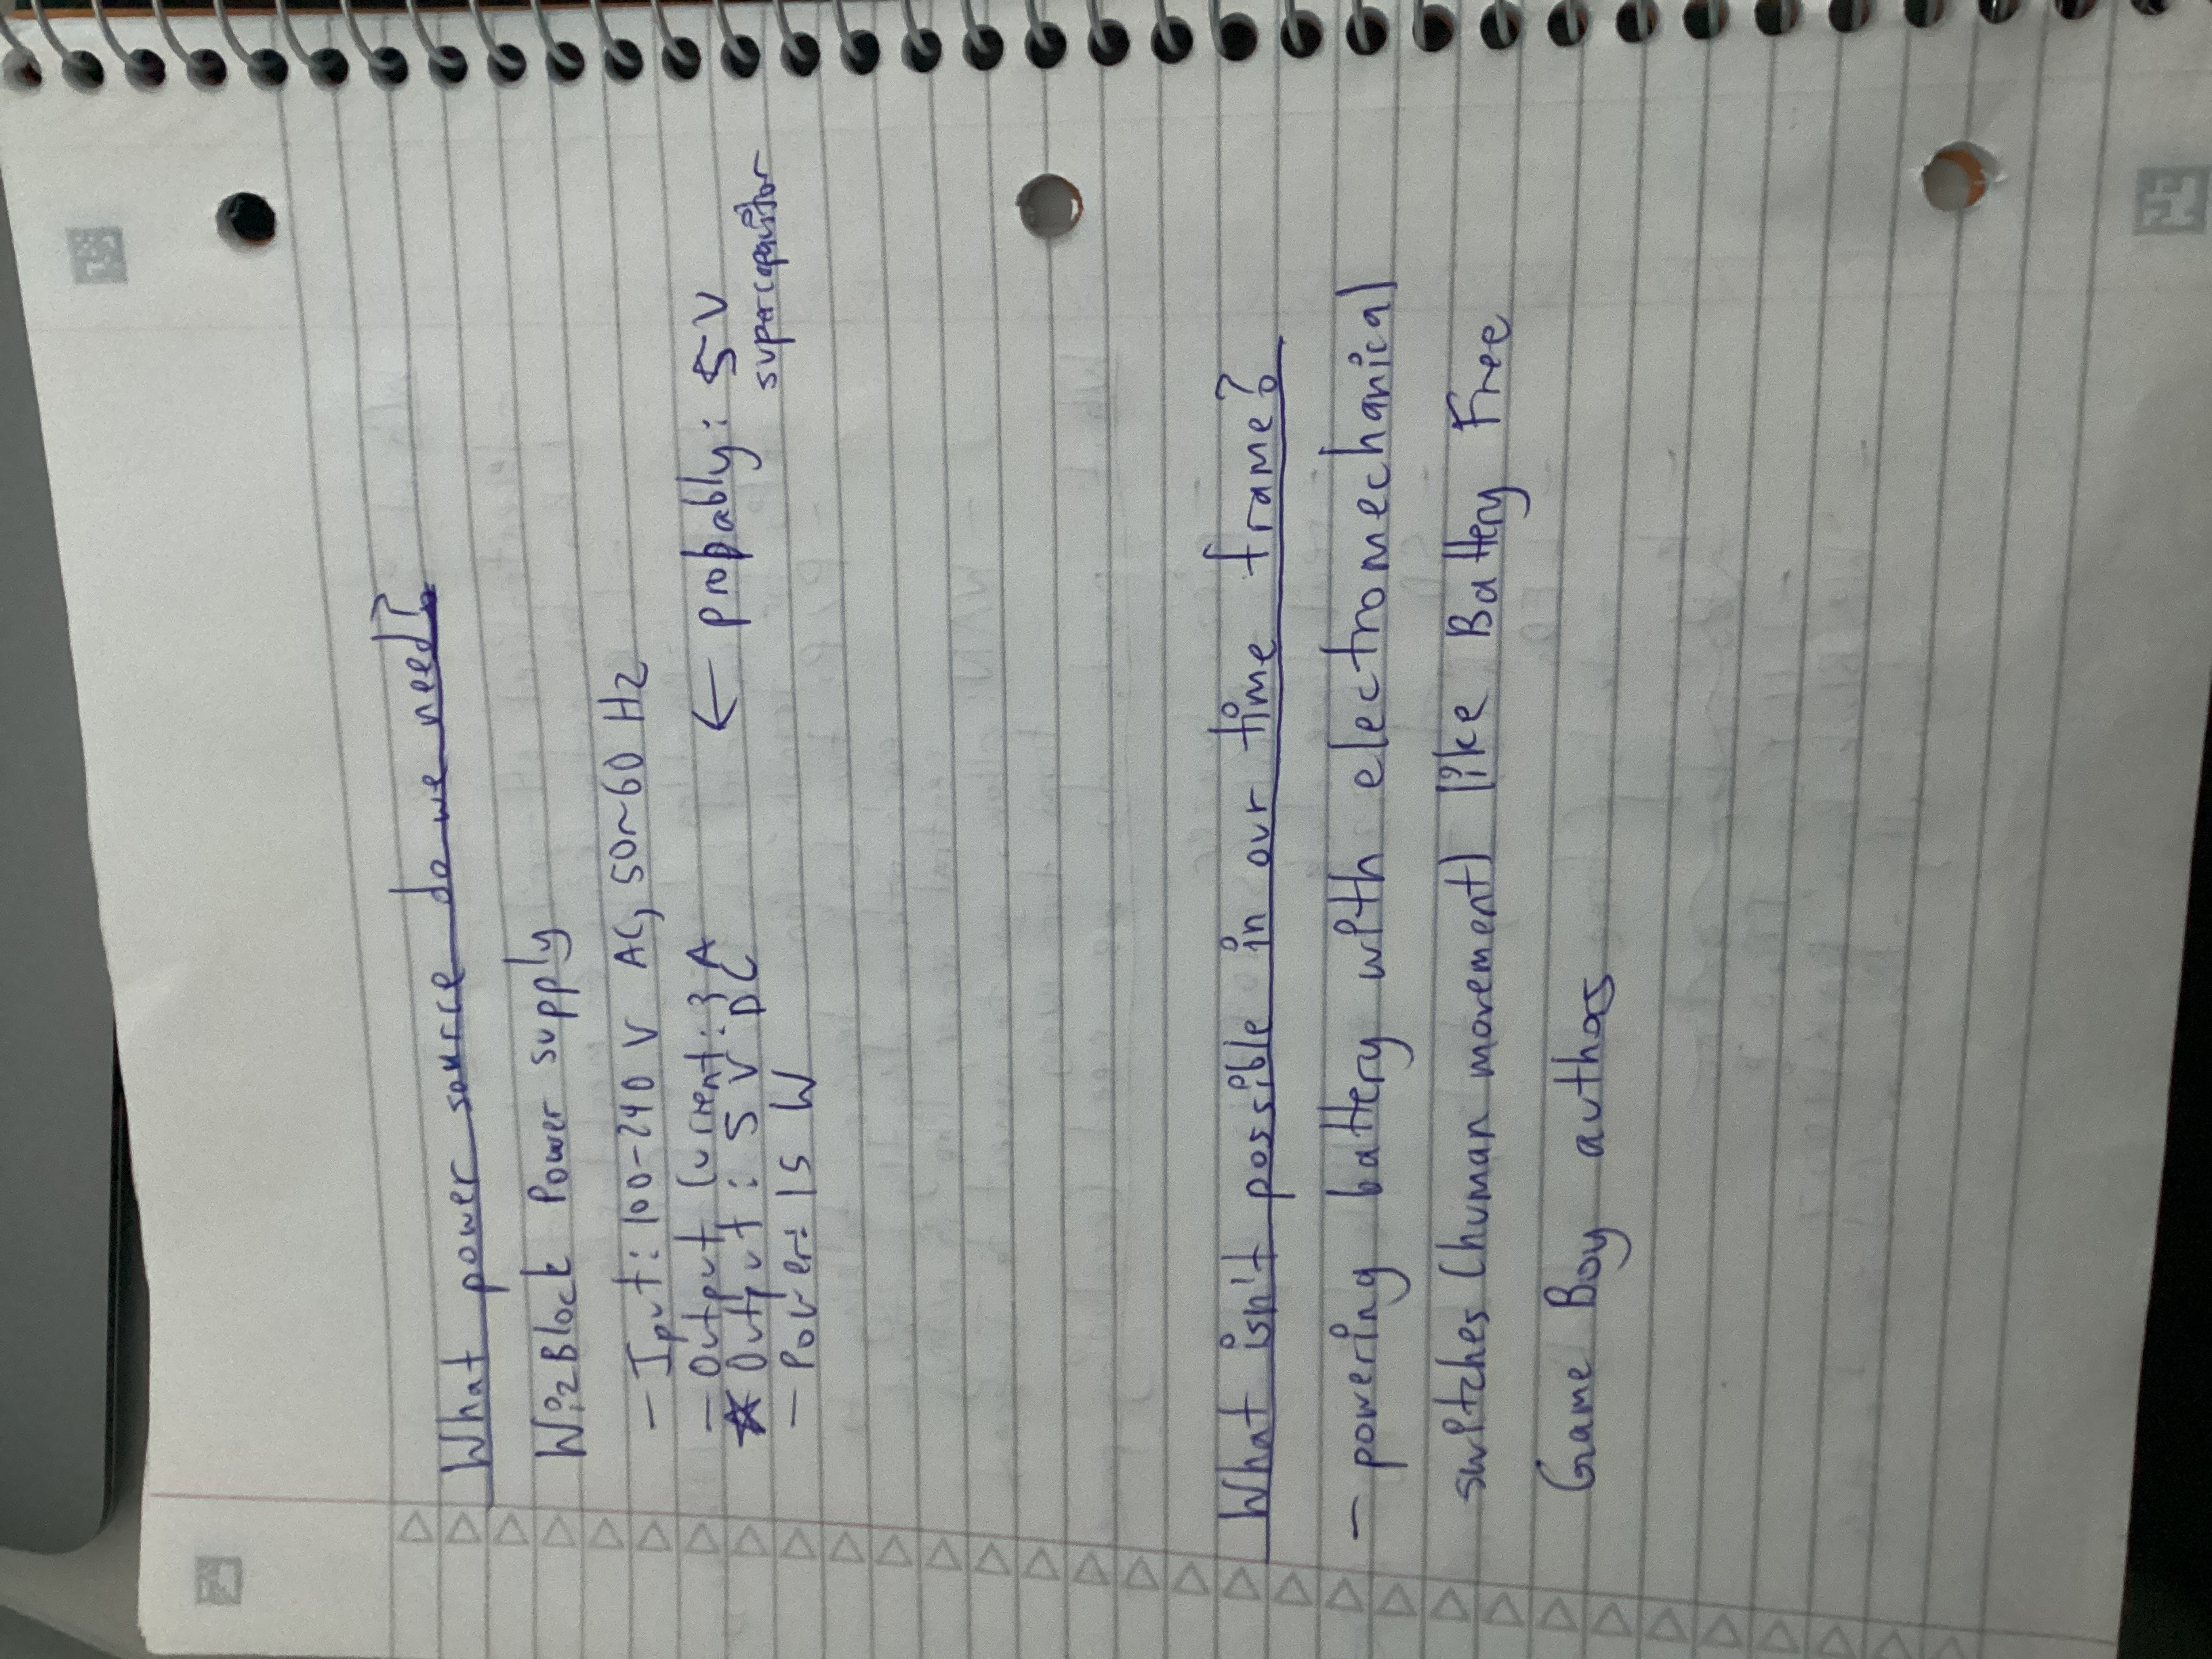 What power source do we need?
WizBlock Power supply
- Iput: 100-240 V AC, 50~60 Hz
- Output Current: 3 A
☆ Output: 5 V DC ← probably: 5 V
supercapacitor
- Power: 15 W
What isn't possible in our time frame?
- powering battery with electromechanical
switches (human movement) like Battery Free
Game Boy authors